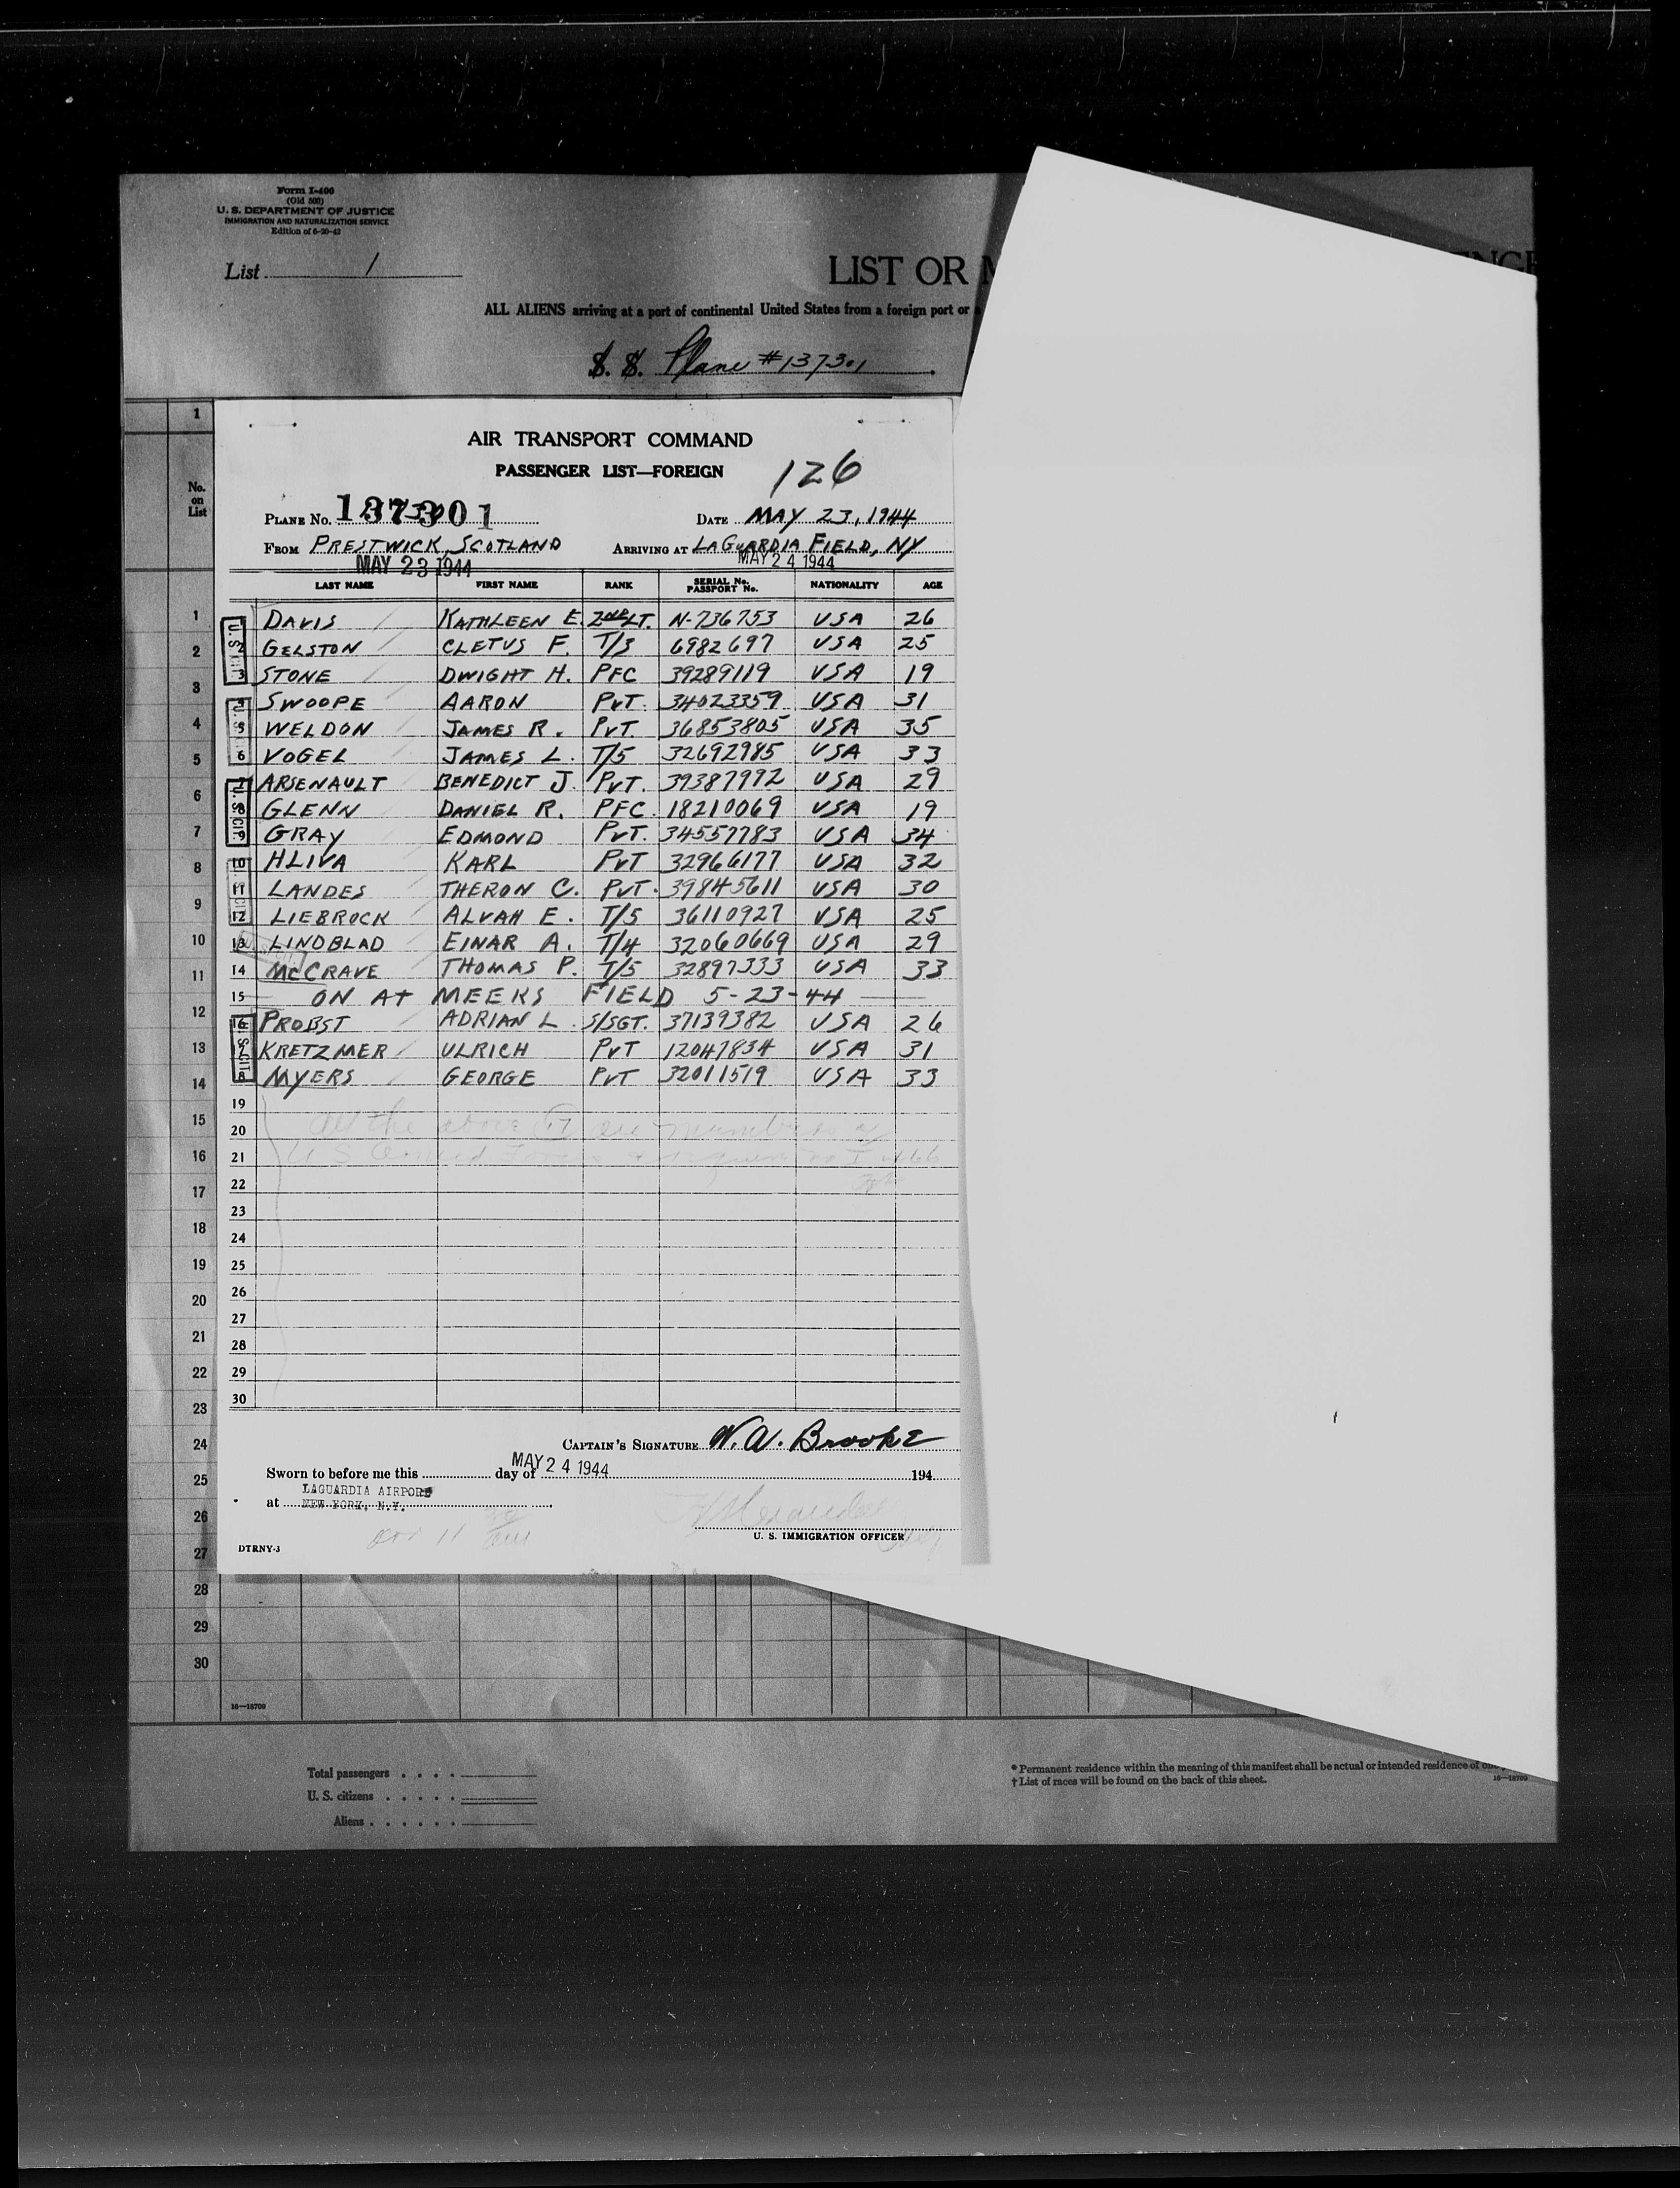 Form I-400
(Old 500)
U. S. DEPARTMENT OF JUSTICE
IMMIGRATION AND NATURALIZATION SERVICE
Edition of 6-20-43
List 1
LIST OR
ALL ALIENS arriving at a port of continental United States from a foreign port or
S. S. Plane #137301
1
No. on List
AIR TRANSPORT COMMAND
PASSENGER LIST—FOREIGN
126
PLANE No. 137301 DATE MAY 23, 1944
FROM PRESTWICK, SCOTLAND ARRIVING AT LAGUARDIA FIELD, NY
MAY 23 1944 MAY 24 1944
LAST NAME FIRST NAME RANK SERIAL No. PASSPORT No. NATIONALITY AGE
DAVIS KATHLEEN E. 2ND LT. N-736753 USA 26
2 GELSTON CLETUS F. T/3 6982697 USA 25
3 STONE DWIGHT H. PFC 39289119 USA 19
SWOOPE AARON PVT. 34023359 USA 31
5 WELDON JAMES R. PVT. 36853805 USA 35
6 VOGEL JAMES L. T/5 32692985 USA 33
ARSENAULT BENEDICT J. PVT. 39387992 USA 29
GLENN DANIEL R. PFC. 18210069 USA 19
GRAY EDMOND PVT. 34557783 USA 34
10 HLIVA KARL PVT 32966177 USA 32
11 LANDES THERON C. PVT. 39845611 USA 30
12 LIEBROCK ALVAH E. T/5 36110927 USA 25
13 LINDBLAD EINAR A. T/4 32060669 USA 29
14 MCCRAVE THOMAS P. T/5 32897333 USA 33
15 ON AT MEEKS FIELD 5-23-44
16 PROBST ADRIAN L. S/SGT. 37139382 USA 26
KRETZMER ULRICH PVT 12047834 USA 31
MYERS GEORGE PVT 32011519 USA 33
19
20 All the above 17 are members of
21 U S Armed Forces
22
23
24
25
26
27
28
29
30
CAPTAIN'S SIGNATURE W. A. Brooke
Sworn to before me this day of MAY 24 1944 194
at LAGUARDIA AIRPORT
NEW YORK, N.Y.
U. S. IMMIGRATION OFFICER
DTRNY-3
1
2
3
4
5
6
7
8
9
10
11
12
13
14
15
16
17
18
19
20
21
22
23
24
25
26
27
28
29
30
16—18709
Total passengers
U. S. citizens
Aliens
* Permanent residence within the meaning of this manifest shall be actual or intended residence of
† List of races will be found on the back of this sheet.
16—18709